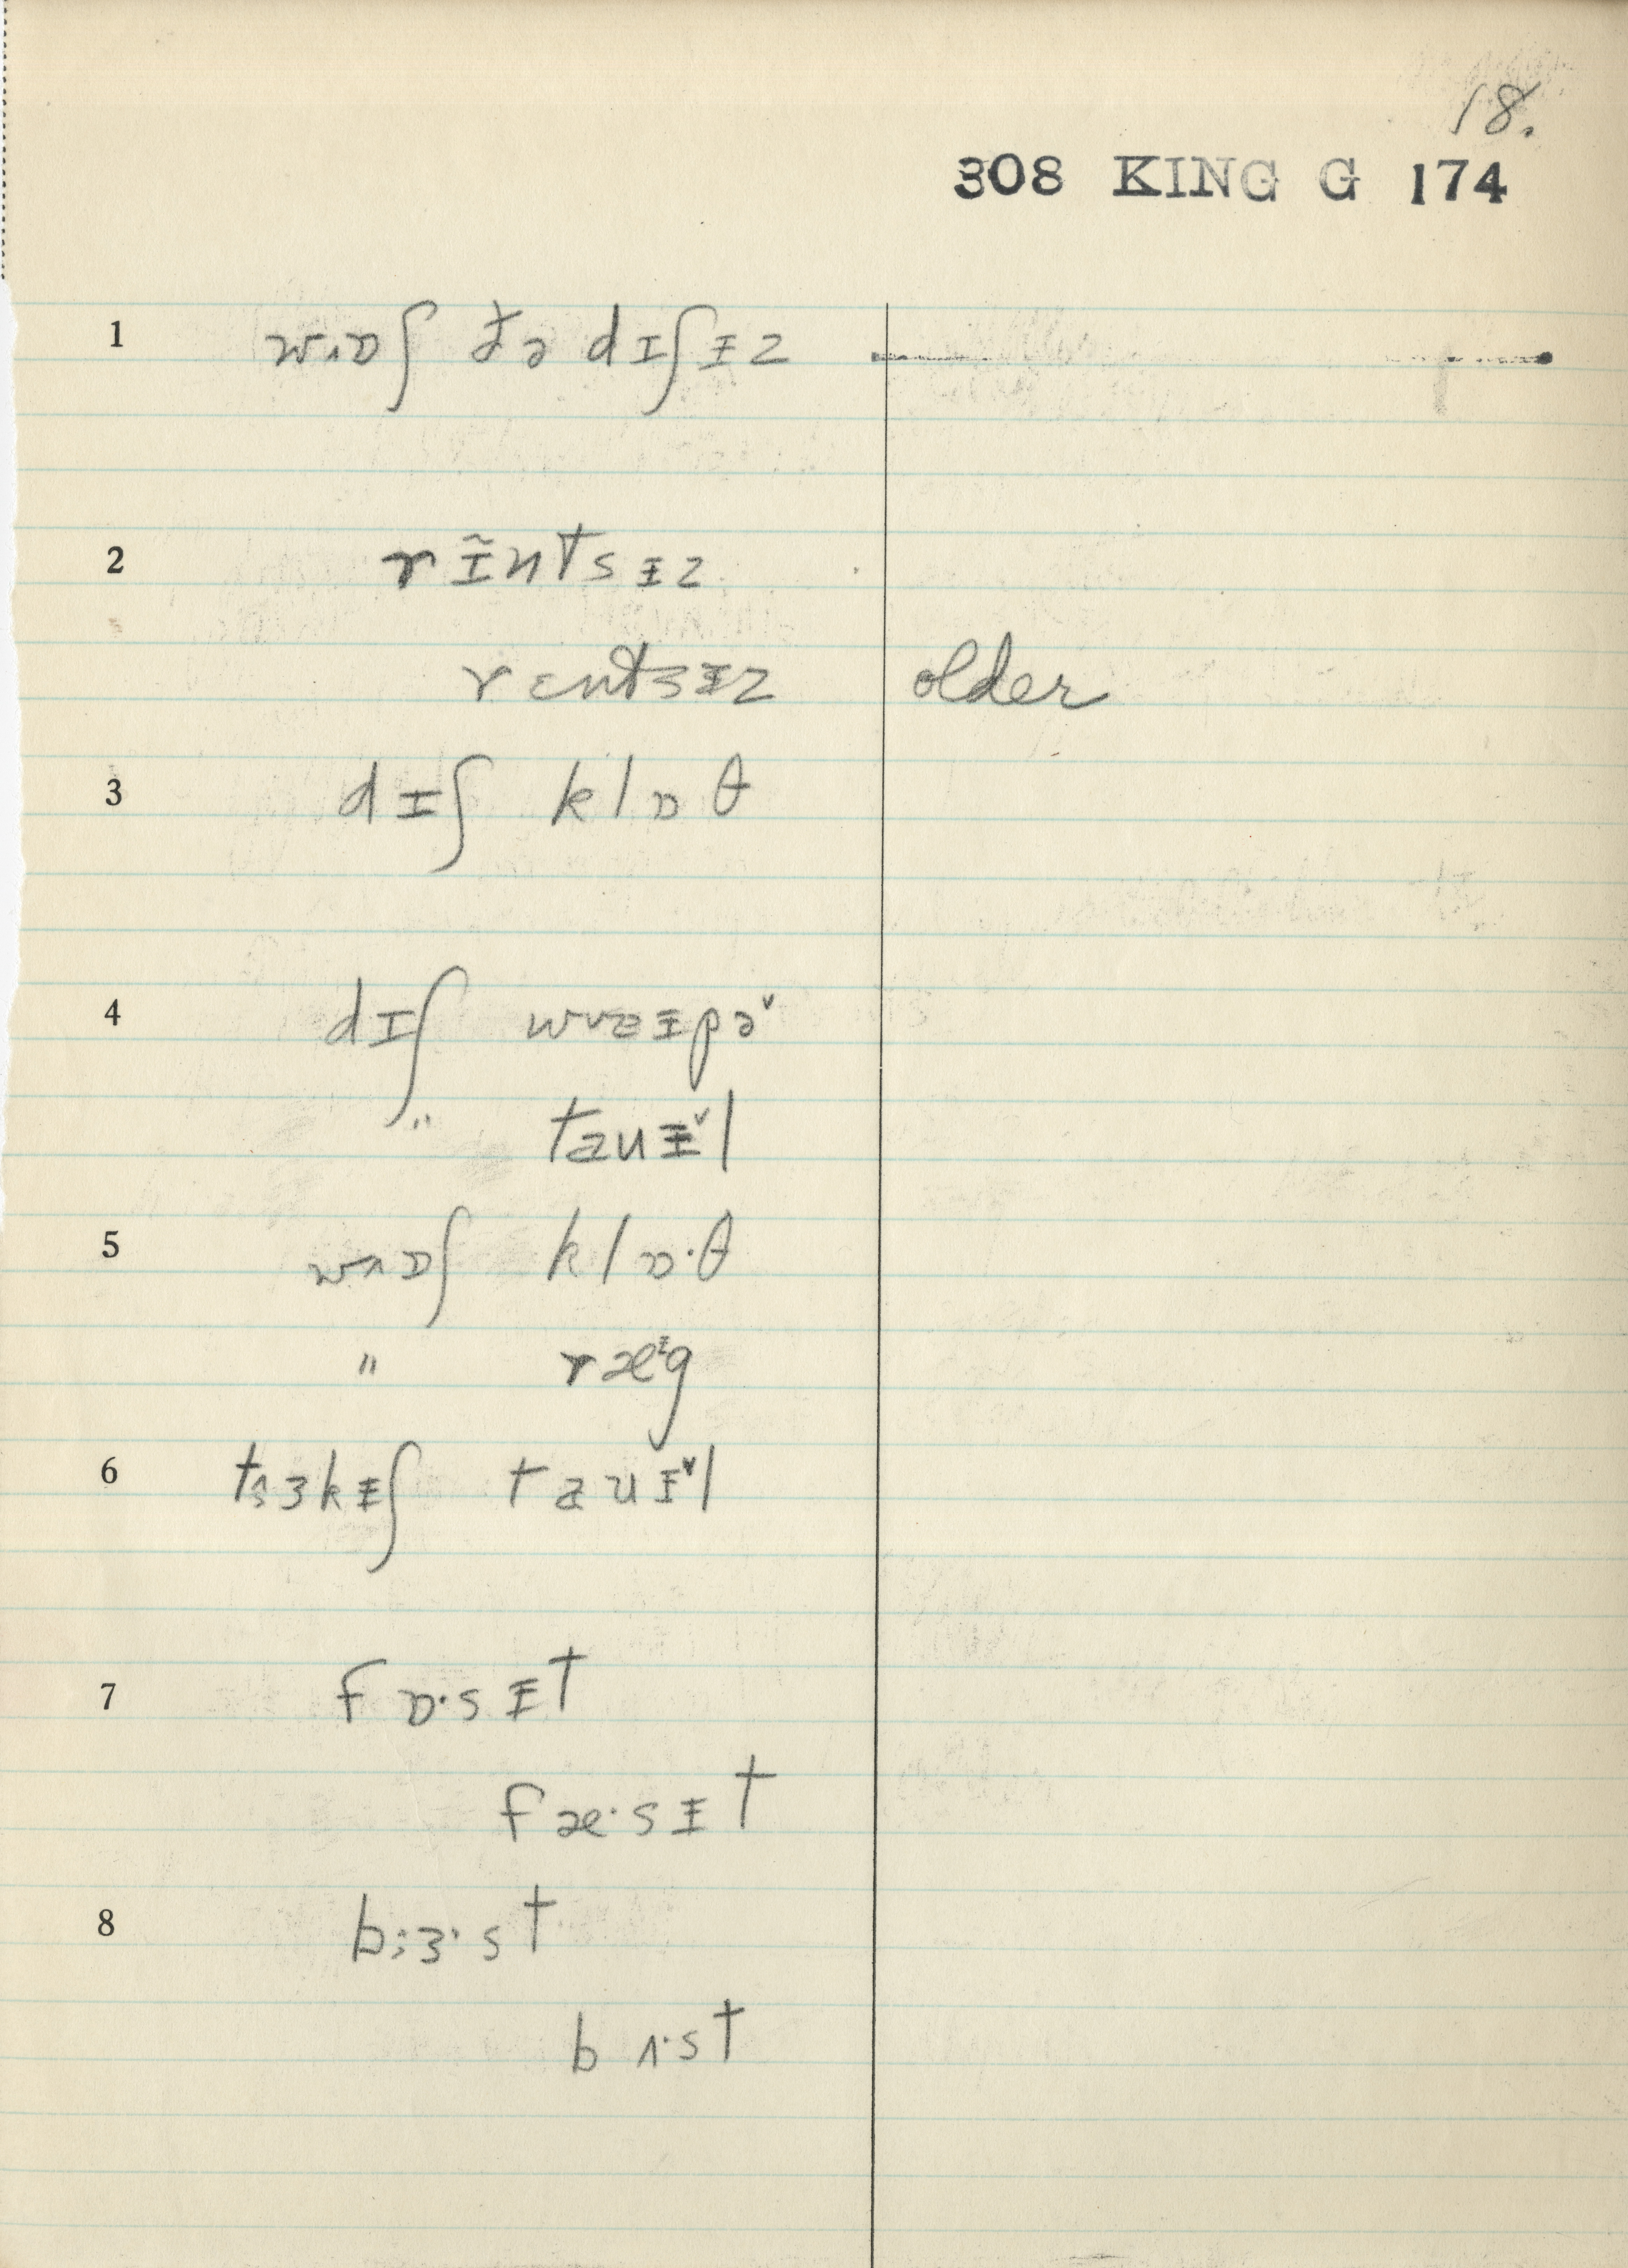 18.
308 KING G 174
1 wʌɒʃ ðə dɪʃɪ̵z
2 rɪ̃ntsɪ̵z
rɛntsɪ̵z older
3 dɪʃ klɒθ
4 dɪʃ waɪ̵pə˅
" tauɪ̵˅l
5 wʌɒʃ klɒ·θ
" ræᵻg
6 tɜkɪ̵ʃ tauɪ̵˅l
7 fɒ·sɪ̵t
fæ·sɪ̵t
8 bɜ·st
bʌ·st